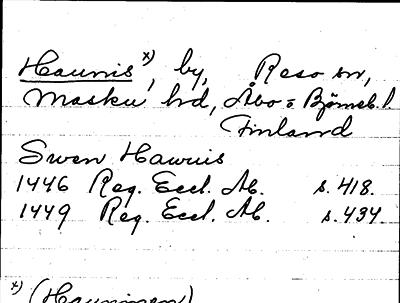 Haunis x), by, Reso sn,
Masku hd, Åbo o Björneb. l.
Finland
Swen Hawnis
1446 Reg. Eccl. Ab. s. 418.
1449 Reg. Eccl. Ab. s. 434.
x) (Hauninen)